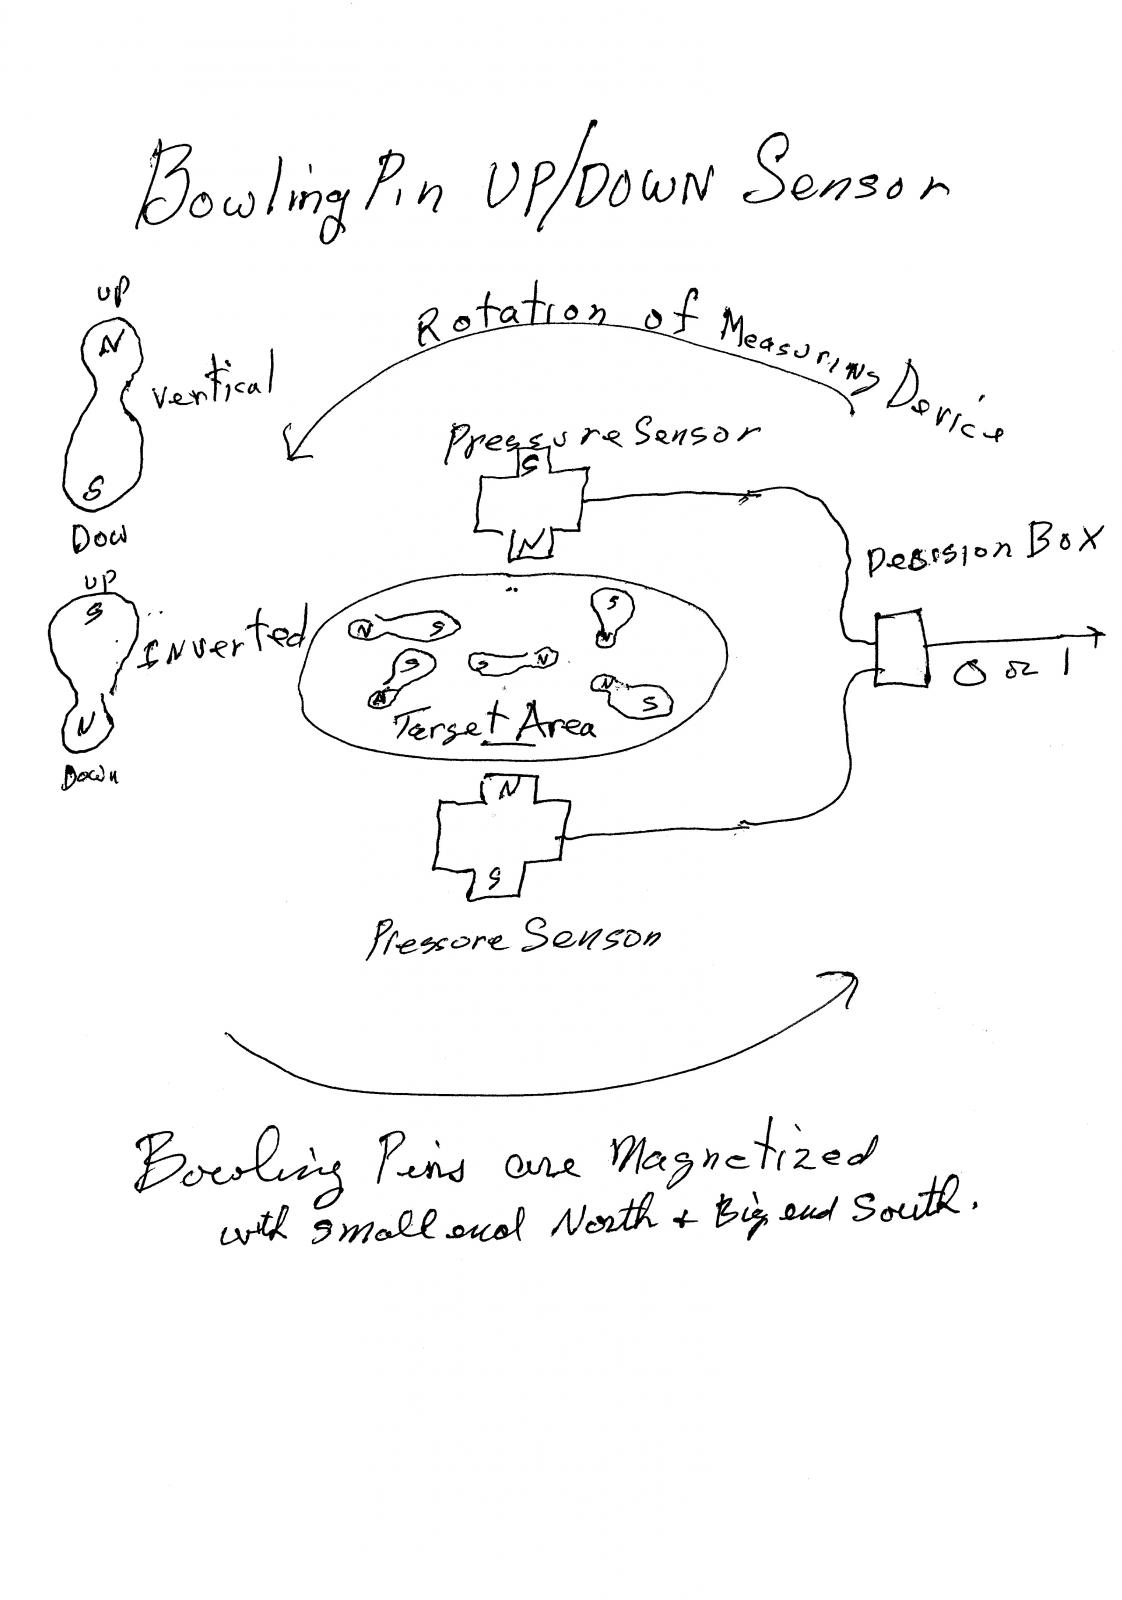 Bowling Pin UP/DOWN Sensor
UP
N
Vertical
S
Dow
UP
S
Inverted
N
Down
Rotation of Measuring Device
Pressure Sensor
S
N
N S
S
N
S
N
S N
N
S
Target Area
Decision Box
0 or 1
N
S
Pressure Sensor
Bowling Pins are Magnetized
with small end North + Big end South.